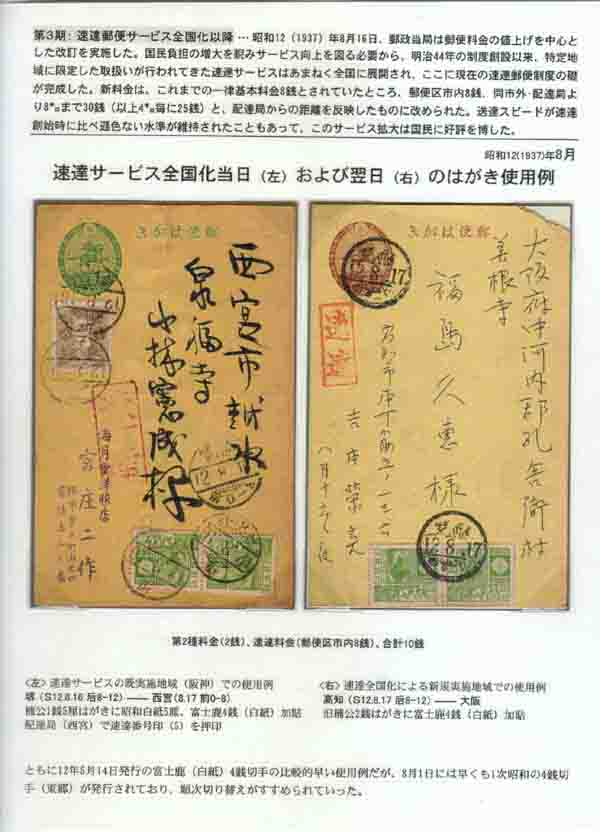 第3期：速達郵便サービス全国化以降 … 昭和12（1937）年8月16日、郵政当局は郵便料金の値上げを中心と
した改訂を実施した。国民負担の増大を睨みサービス向上を図る必要から、明治44年の制度創設以来、特定地
域に限定した取扱いが行われてきた速達サービスはあまねく全国に展開され、ここに現在の速達郵便制度の礎
が完成した。新料金は、これまでの一律基本料金8銭とされていたところ、郵便区市内8銭、同市外・配達局よ
り8㌔まで30銭（以上4㌔毎に25銭）と、配達局からの距離を反映したものに改められた。送達スピードが速達
創始時に比べ遜色ない水準が維持されたこともあって、このサービス拡大は国民に好評を博した。
昭和12(1937)年8月
速達サービス全国化当日（左）および翌日（右）のはがき使用例
きがは便郵
西宮市越水
泉福寺
小林憲成様
宮庄二作
きがは便郵
速達
大阪府中河内郡孔舎衙村
善根寺
福島久恵様
12.8.17
12.8.17
第2種料金(2銭)、速達料金(郵便区市内8銭)、合計10銭
〈左〉速達サービスの既実施地域（阪神）での使用例
堺（S12.8.16 后8-12）—— 西宮（8.17 前0-8）
楠公1銭5厘はがきに昭和白紙5厘、富士鹿4銭（白紙）加貼
配達局（西宮）で速達番号印（5）を押印
〈右〉速達全国化による新規実施地域での使用例
高知（S12.8.17 后8-12）—— 大阪
旧楠公2銭はがきに富士鹿4銭（白紙）加貼
ともに12年5月14日発行の富士鹿（白紙）4銭切手の比較的早い使用例だが、8月1日には早くも1次昭和の4銭切
手（東郷）が発行されており、順次切り替えがすすめられていった。